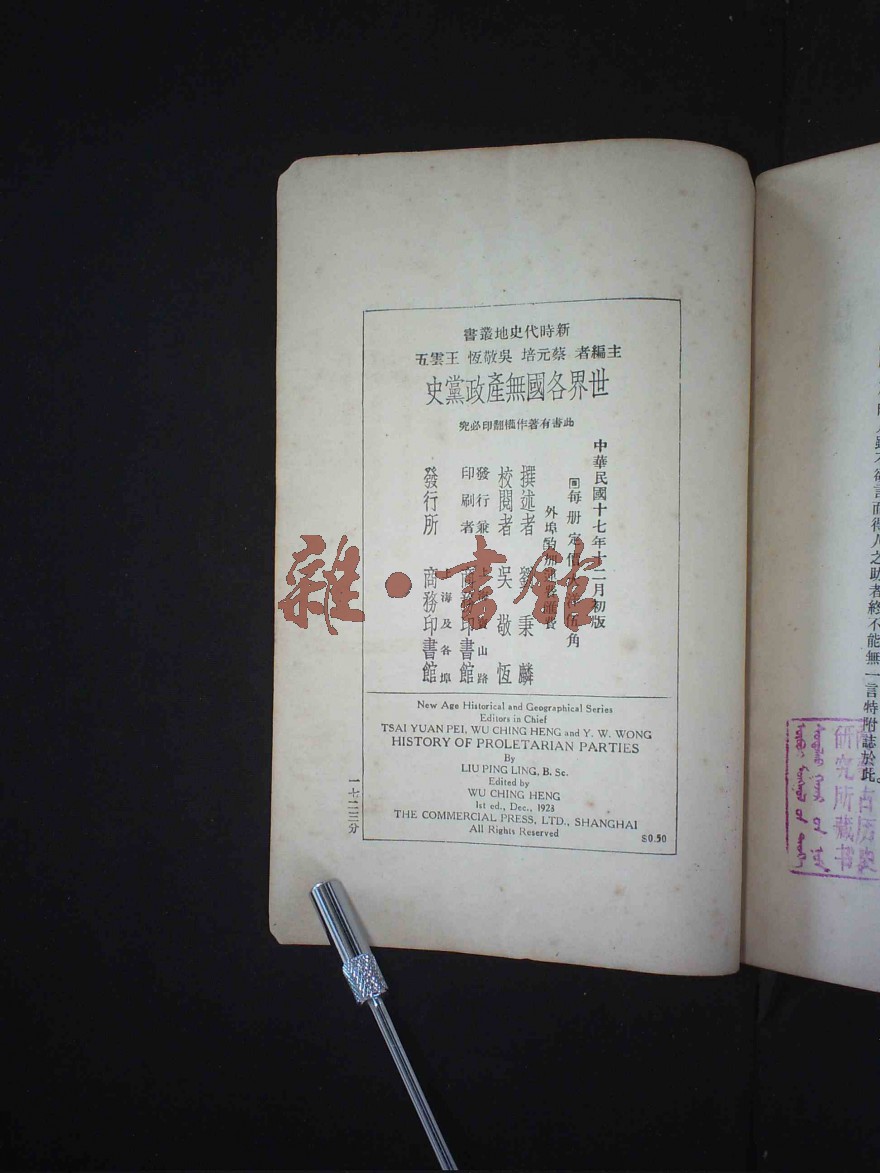 新時代史地叢書
主編者 蔡元培 吳敬恆 王雲五
世界各國無產政黨史
此書有著作權翻印必究
中華民國十七年十二月初版
每册定價大洋伍角
外埠酌加運費匯費
撰述者 劉秉麟
校閱者 吳敬恆
發行兼印刷者 上海寶山路 商務印書館
發行所 上海及各埠 商務印書館
New Age Historical and Geographical Series
Editors in Chief
TSAI YUAN PEI, WU CHING HENG and Y. W. WONG
HISTORY OF PROLETARIAN PARTIES
By
LIU PING LING, B. Sc.
Edited by
WU CHING HENG
1st ed., Dec., 1928
THE COMMERCIAL PRESS, LTD., SHANGHAI
All Rights Reserved
$0.50
一七二三分
雜·書館
言而得人之助者終不能無一言特附誌於此。
研究所藏书